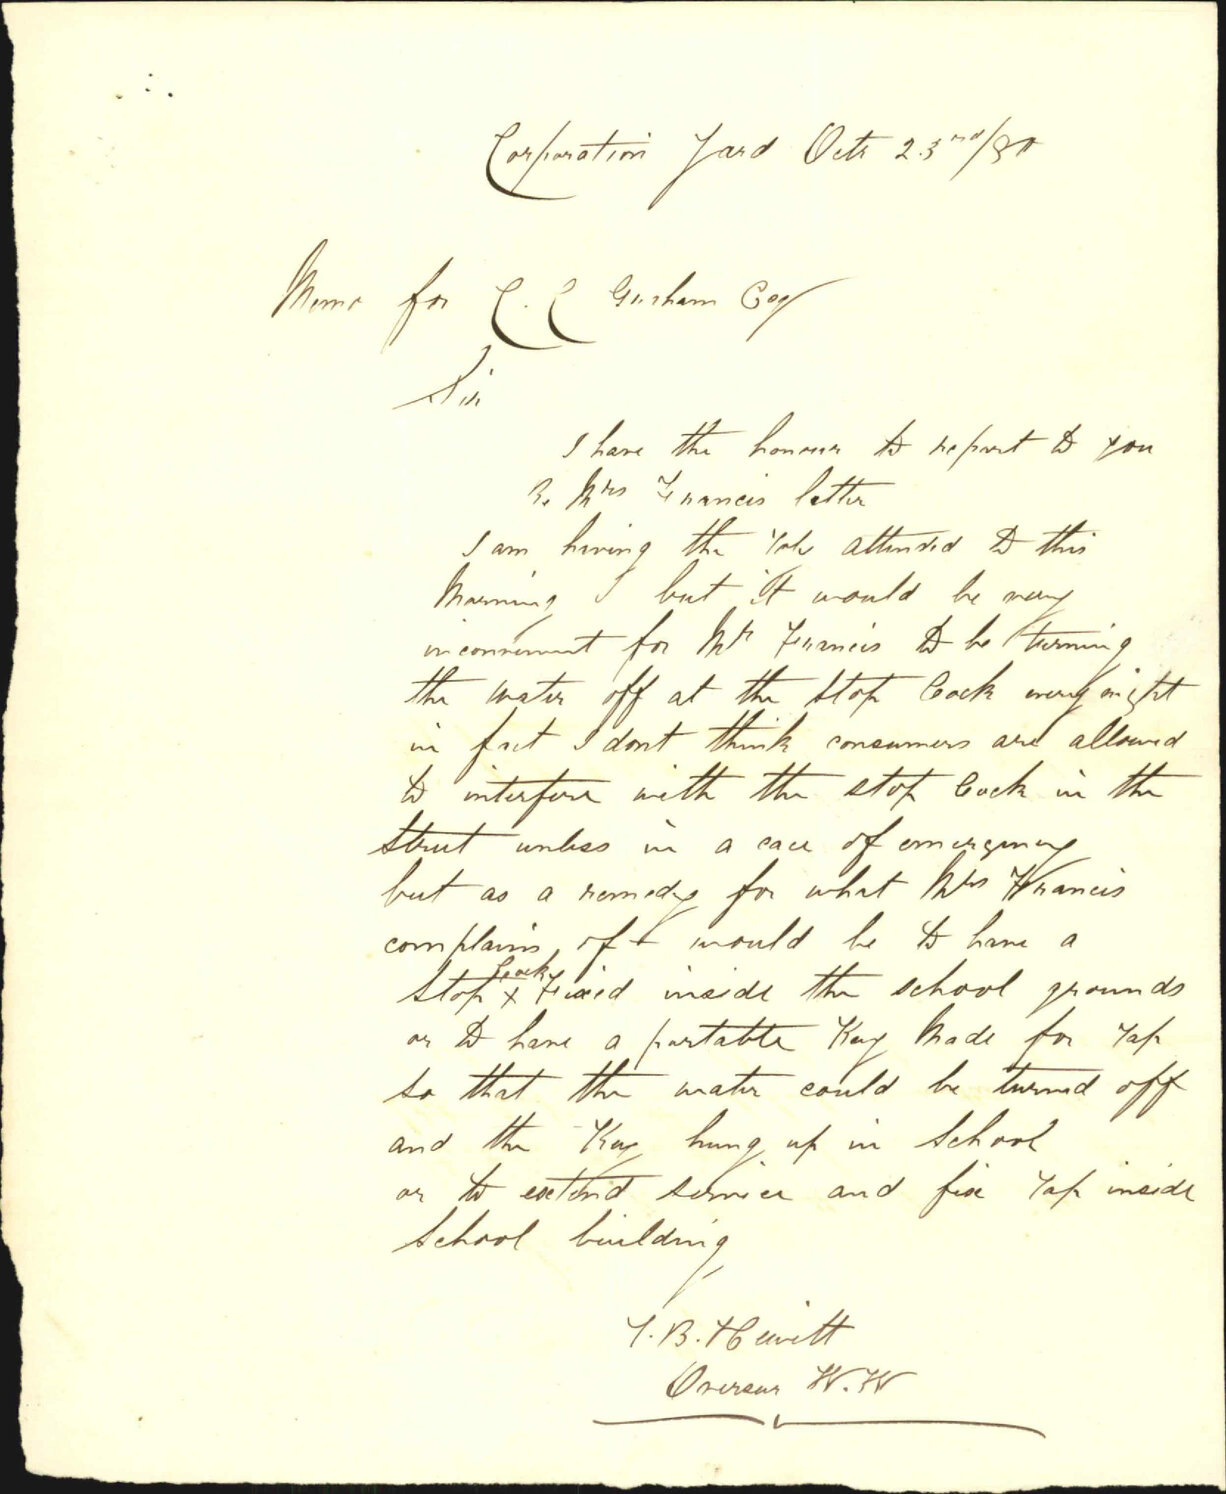 Corporation Yard Octr 23rd/80
Memo for C. C Graham Esq
Sir
I have the honour to report to you
Re Mrs Francis letter
I am having the Job attended to this
Morning but it would be very
inconvenient for Mr Francis to be turning
the water off at the Stop Cock every night
in fact I dont think consumers are allowed
to interfere with the stop Cock in the
Street unless in a case of emergency
but as a remedy for what Mrs Francis
complains of would be to have a
Cock
Stop x Fixed inside the school grounds
or to have a portable Key Made for Tap
so that the water could be turned off
and the Key hung up in School
or to extend service and fix Tap inside
School building
T. B. Hewitt
Overseer W.W